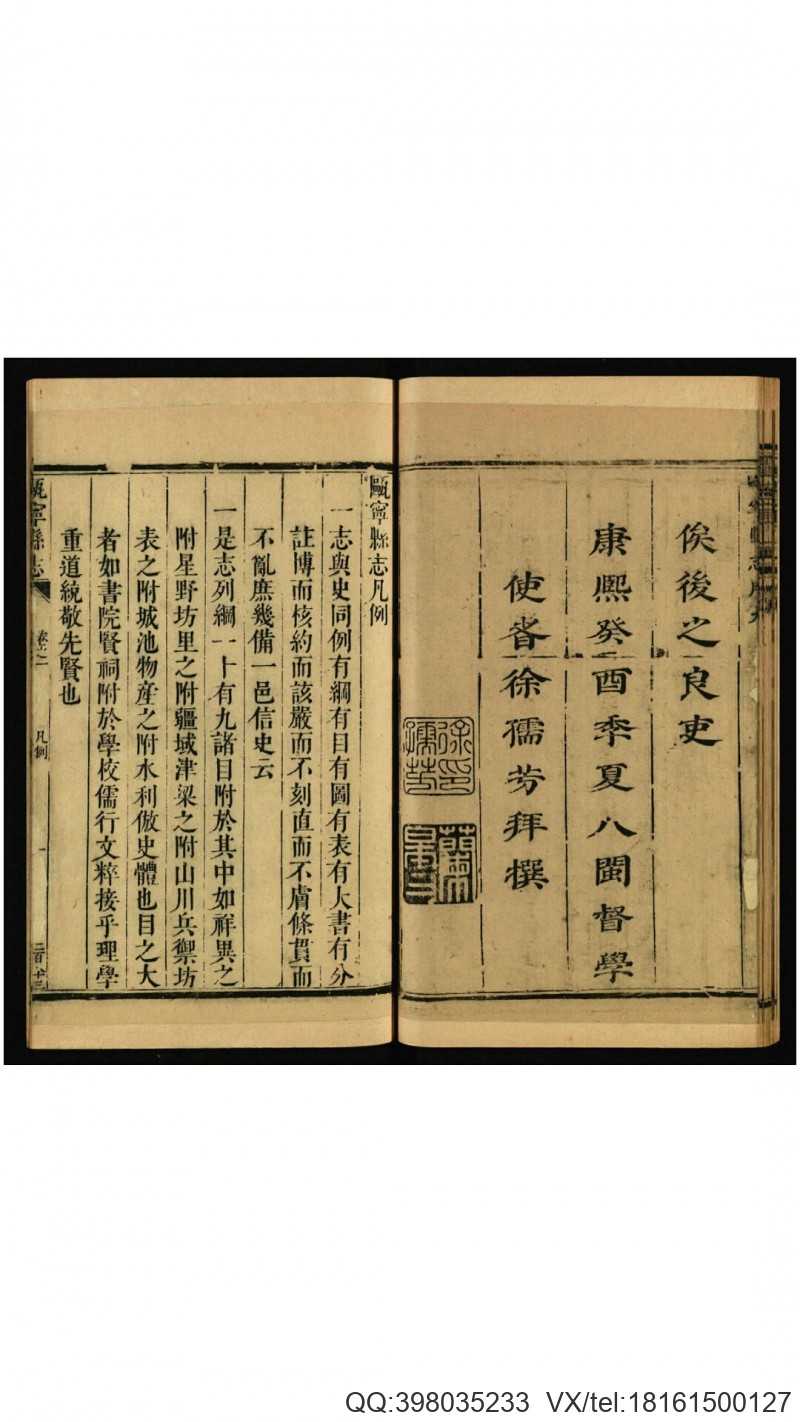 俟後之良吏
康熙癸酉季夏八閩督學
使者徐孺芳拜撰
甌寧縣志凡例
一志與史同例有綱有目有圖有表有大書有分
註博而核約而該嚴而不刻直而不膚條貫而
不亂庶幾備一邑信史云
一是志列綱一十有九諸目附於其中如祥異之
附星野坊里之附疆域津梁之附山川兵禦坊
表之附城池物產之附水利倣史體也目之大
者如書院賢祠附於學校儒行文粹接乎理學
重道統敬先賢也
甌寧縣志
凡例
一
QQ:398035233 VX/tel:18161500127